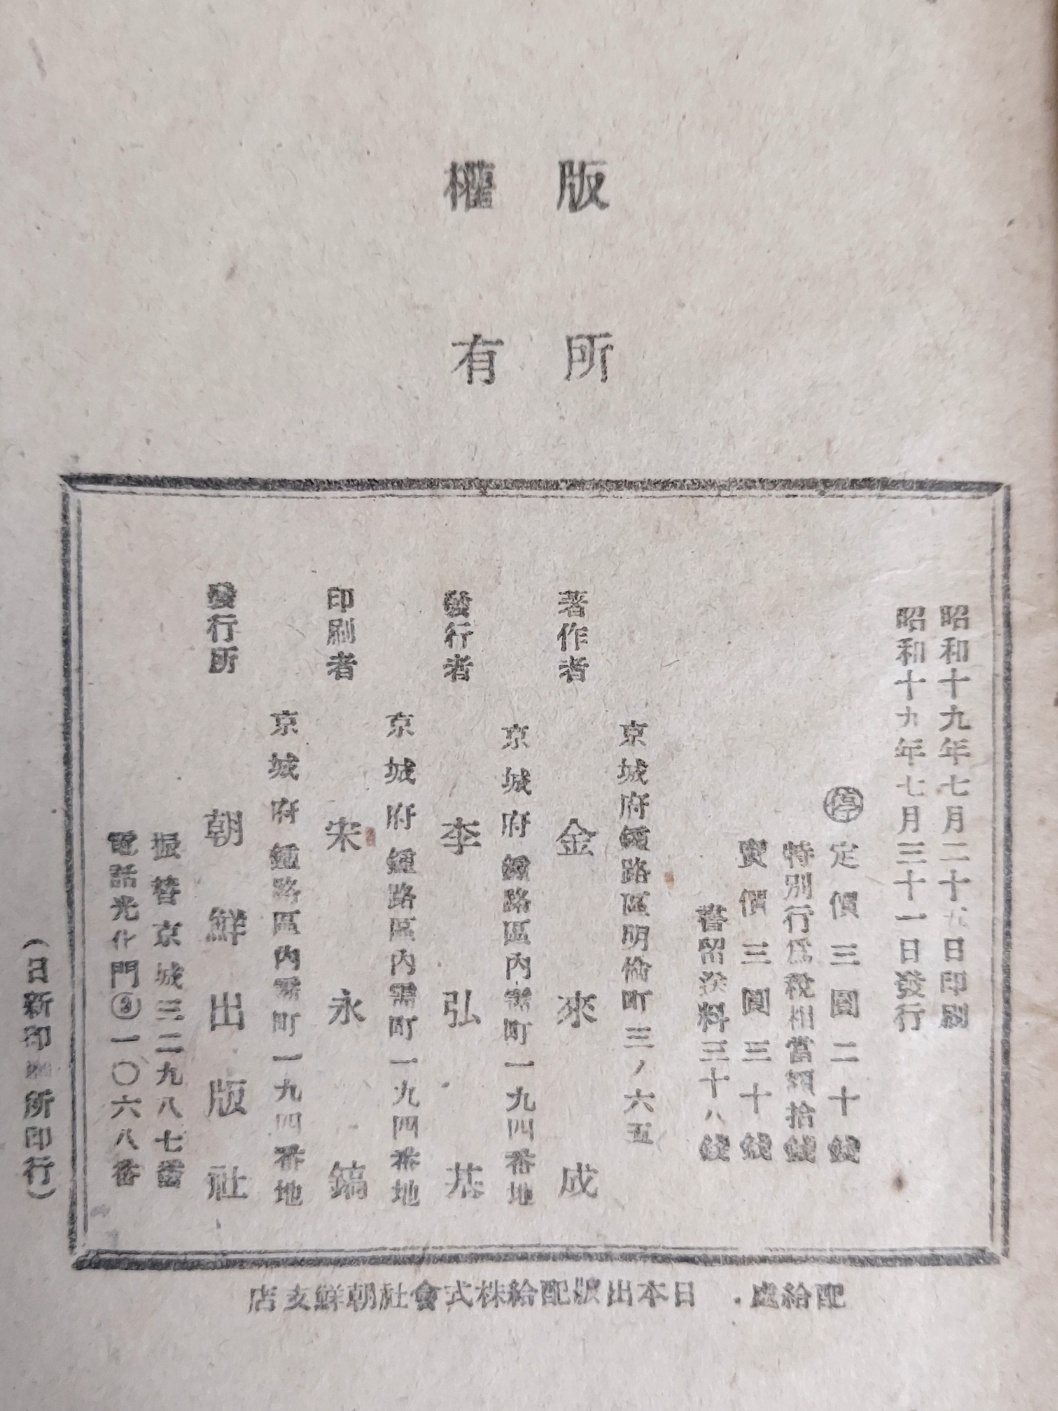 版權
所有
昭和十九年七月二十五日印刷
昭和十九年七月三十一日發行
停定價三圓二十錢
特別行爲稅相當額拾錢
賣價三圓三十錢
書留送料三十八錢
京城府鍾路區明倫町三ノ六五
著作者 金來成
京城府鍾路區內需町一九四番地
發行者 李弘基
京城府鍾路區內需町一九四番地
印刷者 宋永鎬
京城府鍾路區內需町一九四番地
發行所 朝鮮出版社
振替京城三二九八七番
電話光化門③一〇六八番
(日新印刷所印行)
配給處．日本出版配給株式會社朝鮮支店